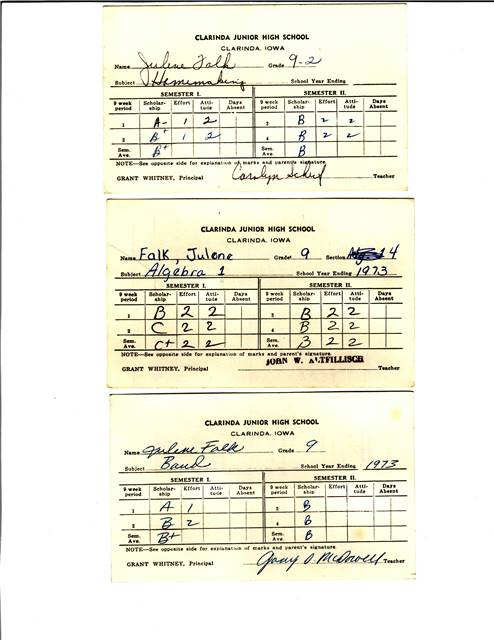 CLARINDA JUNIOR HIGH SCHOOL
CLARINDA, IOWA
Name Julene Falk Grade 9-2
Subject Homemaking School Year Ending
SEMESTER I. SEMESTER II.
9 week period Scholar-ship Effort Atti-tude Days Absent 9 week period Scholar-ship Effort Atti-tude Days Absent
1 A- 1 2 3 B 2 2
2 B+ 1 2 4 B 2 2
Sem. Ave. B+ Sem. Ave. B
NOTE—See opposite side for explanation of marks and parent's signature
GRANT WHITNEY, Principal Carolyn Teacher
CLARINDA JUNIOR HIGH SCHOOL
CLARINDA, IOWA
Name Falk, Julene Grade 9 Section 14
Subject Algebra 1 School Year Ending 1973
SEMESTER I. SEMESTER II.
9 week period Scholar-ship Effort Atti-tude Days Absent 9 week period Scholar-ship Effort Atti-tude Days Absent
1 B 2 2 3 B 2 2
2 C 2 2 4 B 2 2
Sem. Ave. C+ 2 2 Sem. Ave. B 2 2
NOTE—See opposite side for explanation of marks and parent's signature.
JOHN W. ALTFILLISCH
GRANT WHITNEY, Principal Teacher
CLARINDA JUNIOR HIGH SCHOOL
CLARINDA, IOWA
Name Julene Falk Grade 9
Subject Band School Year Ending 1973
SEMESTER I. SEMESTER II.
9 week period Scholar-ship Effort Atti-tude Days Absent 9 week period Scholar-ship Effort Atti-tude Days Absent
1 A 1 3 B
2 B 2 4 B
Sem. Ave. B+ Sem. Ave. B
NOTE—See opposite side for explanation of marks and parent's signature
GRANT WHITNEY, Principal Gary D. McDowell Teacher